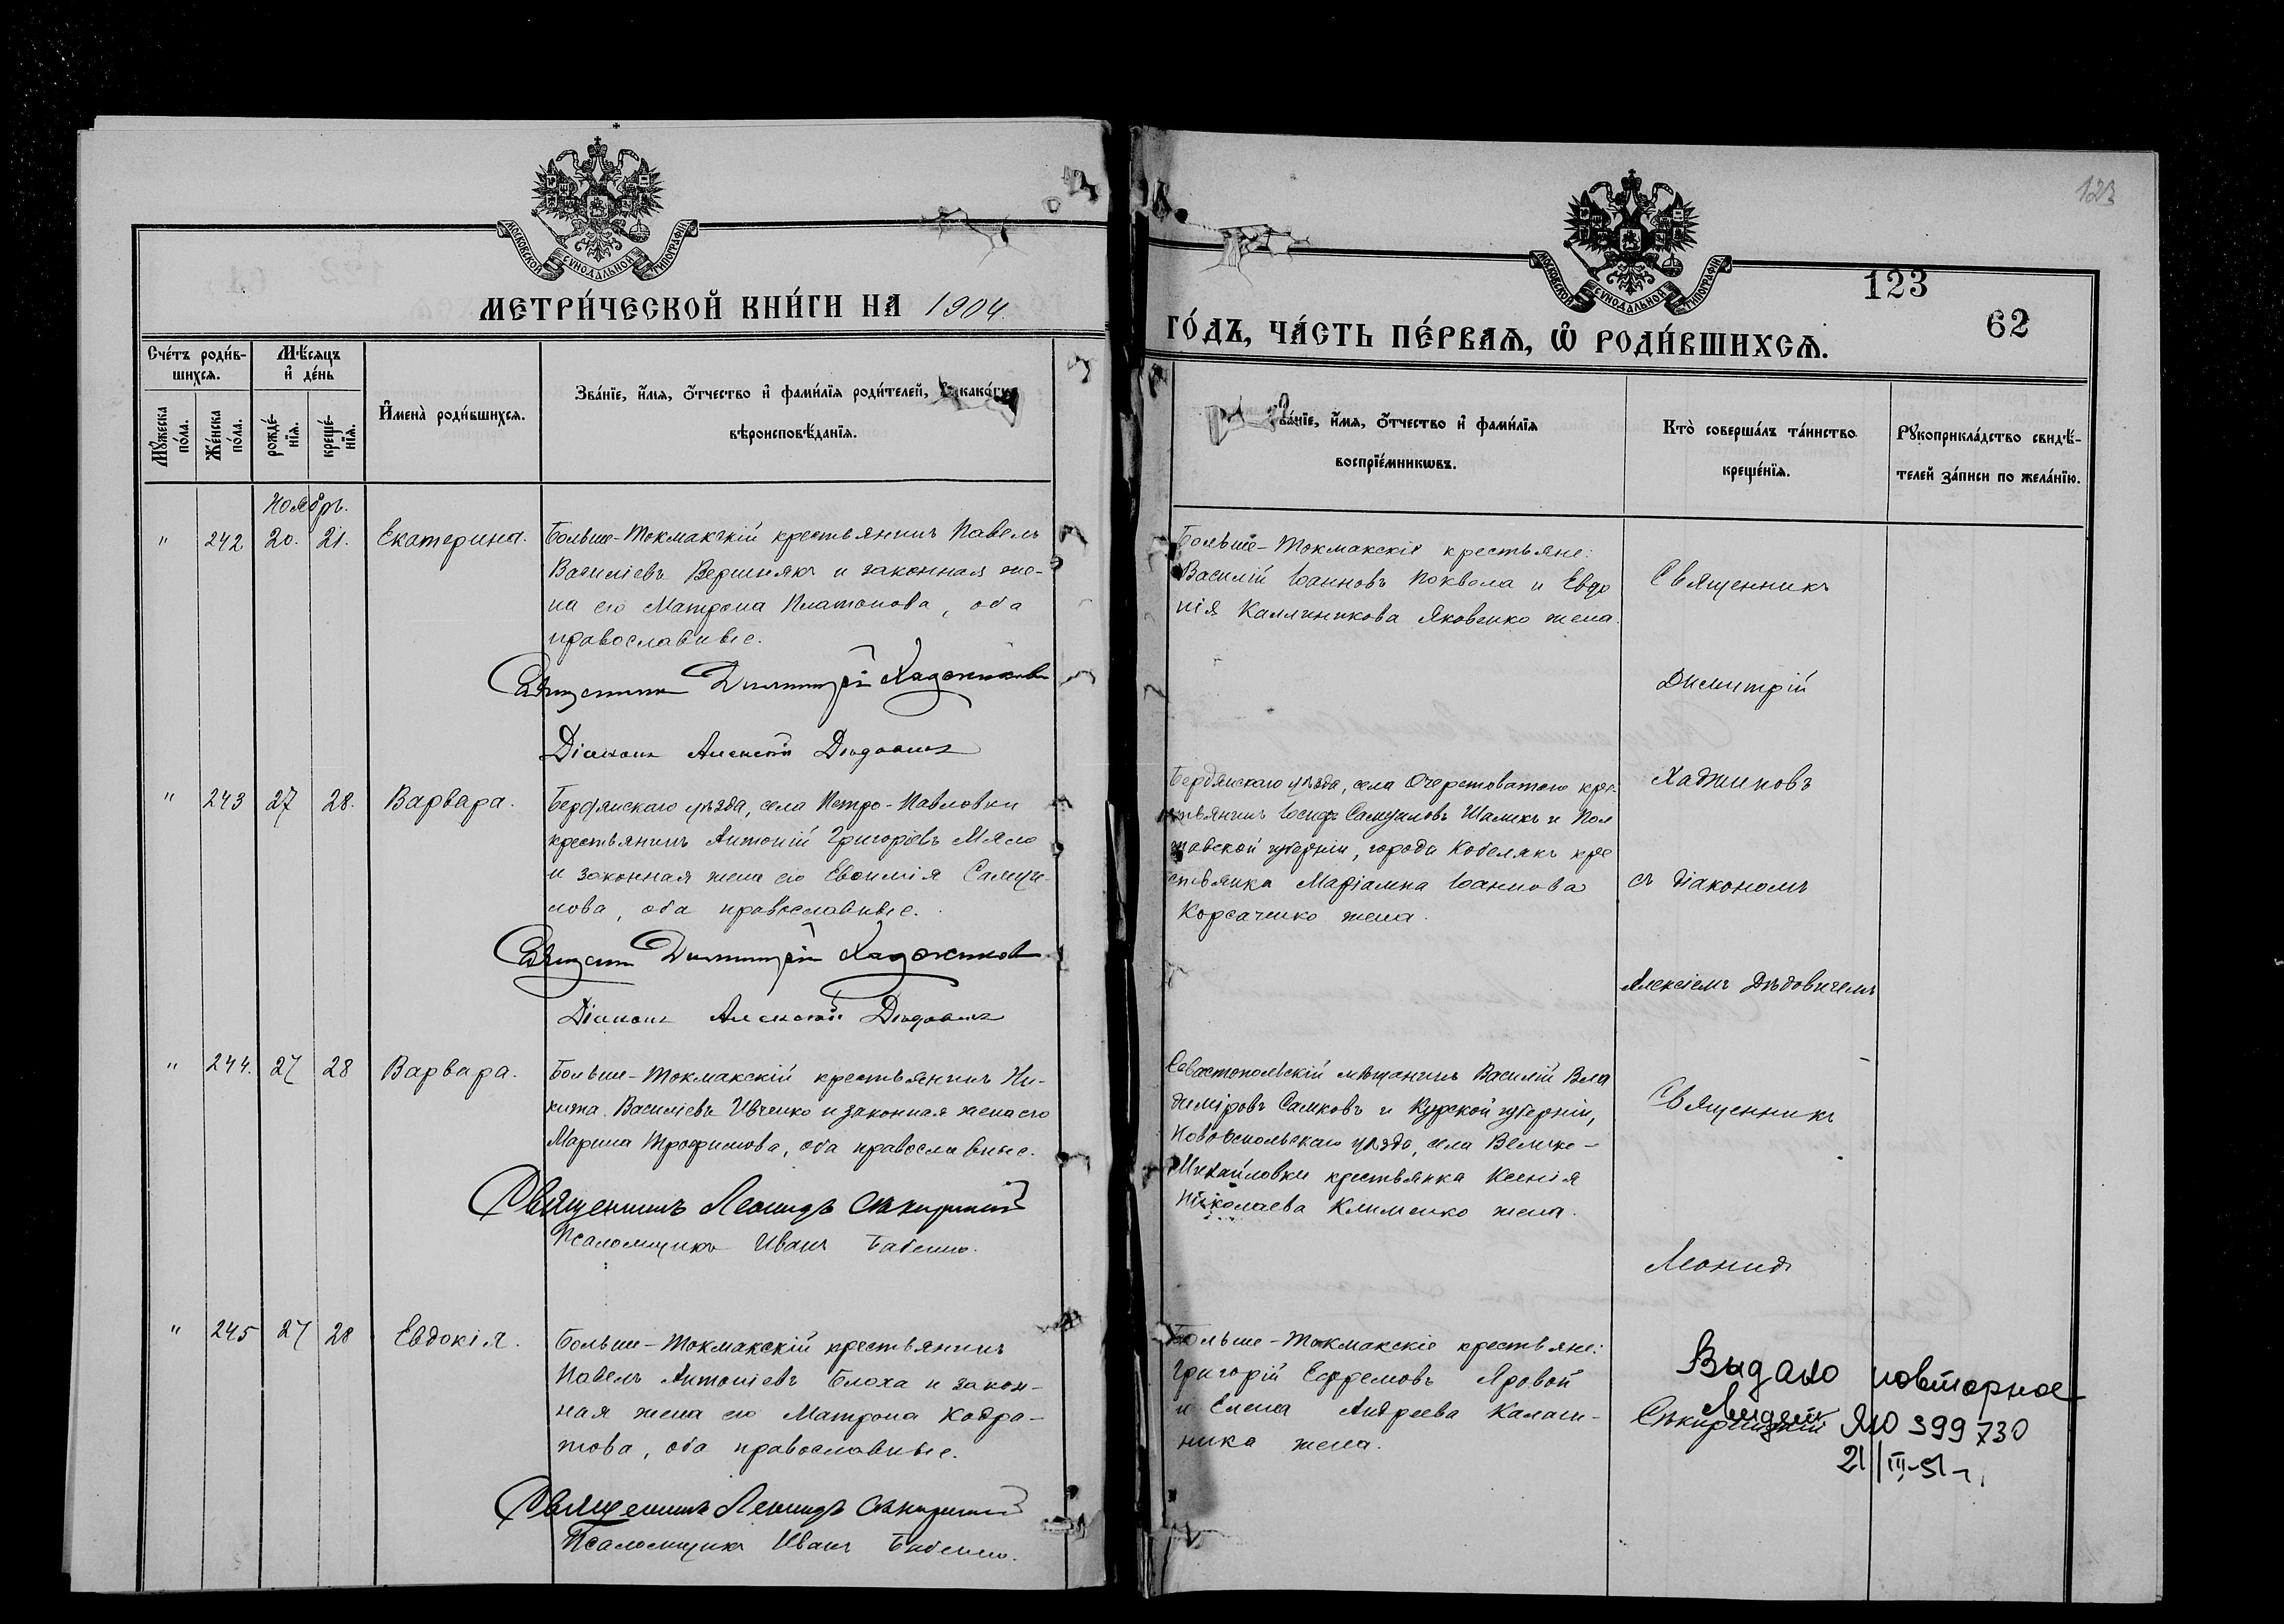 МОСКОВСКОЙ СѴНОДАЛЬНОЙ ТИПОГРАФІИ
МЕТРИ́ЧЕСКОЙ КНИ́ГИ НА 1904.
Сче́тъ роди́в-
шихсѧ.
Мѣ́сѧцъ
и҆ де́нь
И҆мена̀ роди́вшихсѧ.
Зва́нїе, и҆́мѧ, ѻ҆́тчество и҆ фами́лїѧ роди́телей, и҆ како́гѡ
вѣроисповѣ́данїѧ.
Мꙋ́жеска
по́ла.
Же́нска
по́ла.
рожде́-
нїѧ.
креще́-
нїѧ.
Ноябрь.
" 242 20. 21. Екатерина.
Больше-Токмакскій крестьянинъ Павелъ
Василіевъ Вершнякъ и законная же-
на его Матрона Платонова, оба
православные.
Священникъ Димитрій Хаджиновъ
Діаконъ Алексѣй Дѣдовичъ
" 243 27 28. Варвара.
Бердянскаго уѣзда, села Петро-Павловки
крестьянинъ Антоній Григоріевъ Мяло
и законная жена его Евѳимія Самуи-
лова, оба православные.
Священникъ Димитрій Хаджиновъ
Діаконъ Алексѣй Дѣдовичъ
" 244. 27 28 Варвара.
Больше-Токмакскій крестьянинъ Ни-
кита Василіевъ Ивченко и законная жена его
Марина Трофимова, оба православные.
Священникъ Леонидъ Сѣкирскій
Псаломщикъ Иванъ Бабенко.
" 245 27 28 Евдокія.
Больше-Токмакскій крестьянинъ
Павелъ Антоніевъ Блоха и закон-
ная жена его Матрона Кодра-
това, оба православные.
Священникъ Леонидъ
Псаломщикъ Иванъ Бабенко.
123
МОСКОВСКОЙ СѴНОДАЛЬНОЙ ТИПОГРАФІИ
123
62
ГО́ДЪ, ЧА́СТЬ ПЕ́РВАѦ, Ѽ РОДИ́ВШИХСѦ.
Зва́нїе, и҆́мѧ, ѻ҆́тчество и҆ фами́лїѧ
воспрїе́мникѡвъ.
Кто̀ соверша́лъ та́инство
креще́нїѧ.
Рꙋкоприкла́дство свидѣ́-
телей за́писи по жела́нїю.
Больше-Токмакскіе крестьяне:
Василій Іоанновъ Поквола и Евдо
кія Каллиникова Яковенко жена.
Священникъ
Димитрій
Хаджиновъ
съ діакономъ
Алексіемъ Дѣдовичемъ
Бердянскаго уѣзда, села Очеретоватаго кре-
стьянинъ Іосифъ Самуиловъ Шамекъ и Пол
тавской губерніи, города Кобелякъ кре
стьянка Маріамна Іоаннова
Корсаченко жена.
Севастопольскій мѣщанинъ Василій Вла
диміровъ Самковъ и Курской губерніи,
Новооскольскаго уѣзда, села Велико-
Михайловки крестьянка Ксенія
Николаева Клименко жена.
Священникъ
Леонидъ
Больше-Токмакскіе крестьяне:
Григорій Ефремовъ Яровой
и Елена Андреева Калаш-
ника жена.
Выдано повторное
ЯЮ 399730
21/III-51 г.